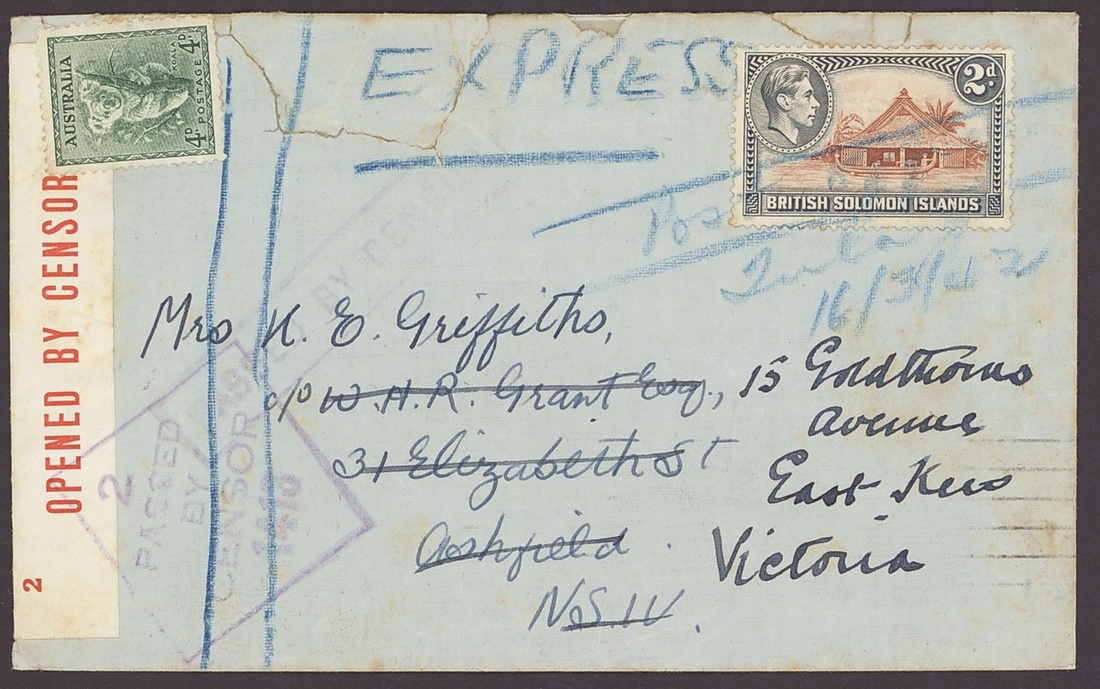 EXPRESS
AUSTRALIA
KOALA
4D POSTAGE 4D
2d.
BRITISH SOLOMON ISLANDS
Pos
Tulagi
16/3/42
OPENED BY CENSOR
2
Mrs K. E. Griffiths,
c/o W. H. R. Grant Esq.,
31 Elizabeth St
Ashfield.
N.S.W.
15 Goldthorns
Avenue
East Kew
Victoria
2
PASSED
BY
CENSOR
BY CEN